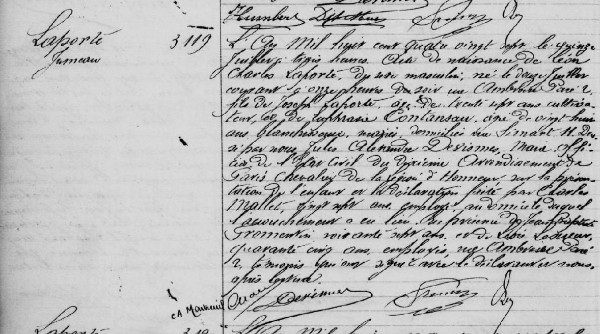 Humbert
Laporte 3119 L'An Mil huit cent quatre vingt sept le quinze
Jumeau Juillet à trois heures. Acte de naissance de Léon
Charles Laporté, du sexe masculin, né le douze Juillet
courant à onze heures du soir rue Ambroise Paré 2,
fils de Joseph Laporté, âgé de trente sept ans cultiva-
teur, et de Euphrasie Contansau, âgée de vingt huit
ans blanchisseuse, mariés, domiciliés rue Simart 11. Dres-
sé par nous Jules Alexandre Devismes, Maire, offi-
cier de l'Etat Civil du dixième Arrondissement de
Paris Chevalier de la Légion d'Honneur, sur la présen-
tation de l'enfant et la déclaration faite par Charles
Mallet, sept ans, employé au domicile duquel
l'accouchement a eu lieu. En présence de Jean
Fromentin soixante sept ans, et de Léon
quarante cinq ans, employés, rue Ambroise Paré
2, témoins qui ont signé avec le déclarant et nous
après lecture.
Devismes
Laporté 3120 L'An Mil huit